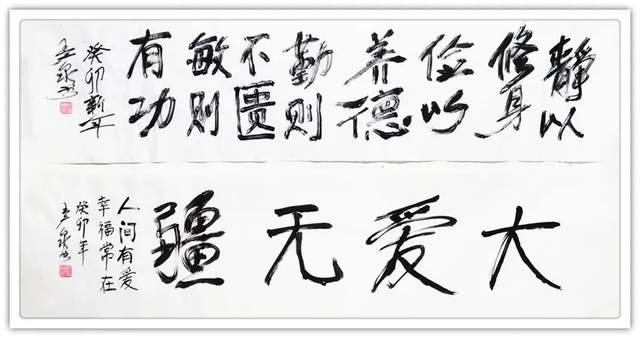 靜以
修身
俭以
养德
勤则
不匮
敏则
有功
癸卯新年
大爱无疆
人间有爱
幸福常在
癸卯年